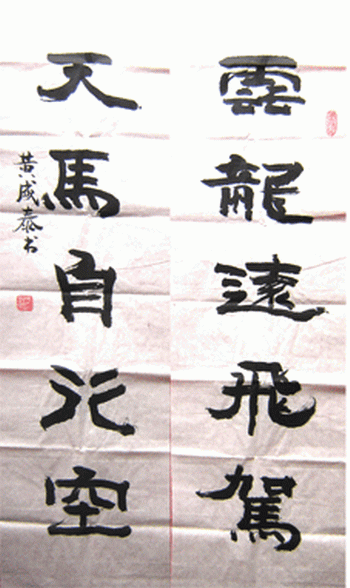 雲龍遠飛駕
天馬自行空
黄成泰书